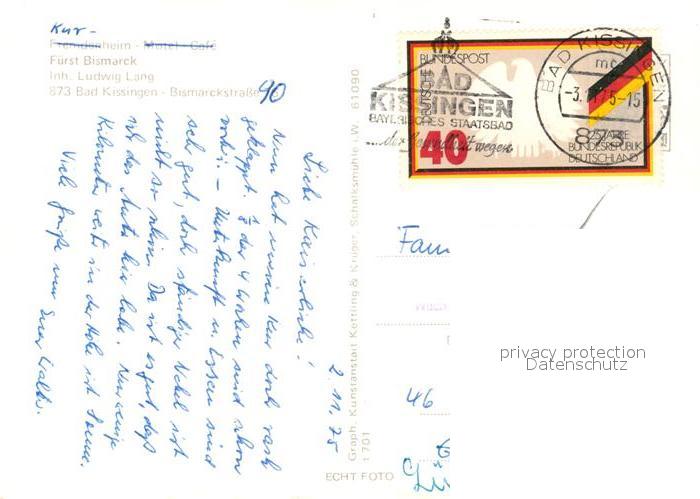 Kur-
Fremdenheim - Motel - Café
Fürst Bismarck
Inh. Ludwig Lang
873 Bad Kissingen - Bismarckstraße 90
2. 11. 75
Liebe
Nun hat meine Kur doch noch
geklappt. ½ der 4 Wochen sind schon
vorbei. - Unterkunft u. Essen sind
sehr gut, doch ständige Nebel ist
nicht so schön. Da ist es gut, daß
ich das Auto hier habe. Nur wenige
Kilometer weiter in der Höhe ist Sonne.
Viele Grüße von Eurer
Graph. Kunstanstalt Kettling & Krüger, Schalksmühle i. W. 61090
1701
ECHT FOTO
DEUTSCHE BUNDESPOST
40
25 JAHRE
BUNDESREPUBLIK
DEUTSCHLAND
BAD
KISSINGEN
BAYERISCHES STAATSBAD
...der Gesundheit wegen
BAD KISSINGEN
mc
-3.11.75-15
873
Fam
46
privacy protection
Datenschutz